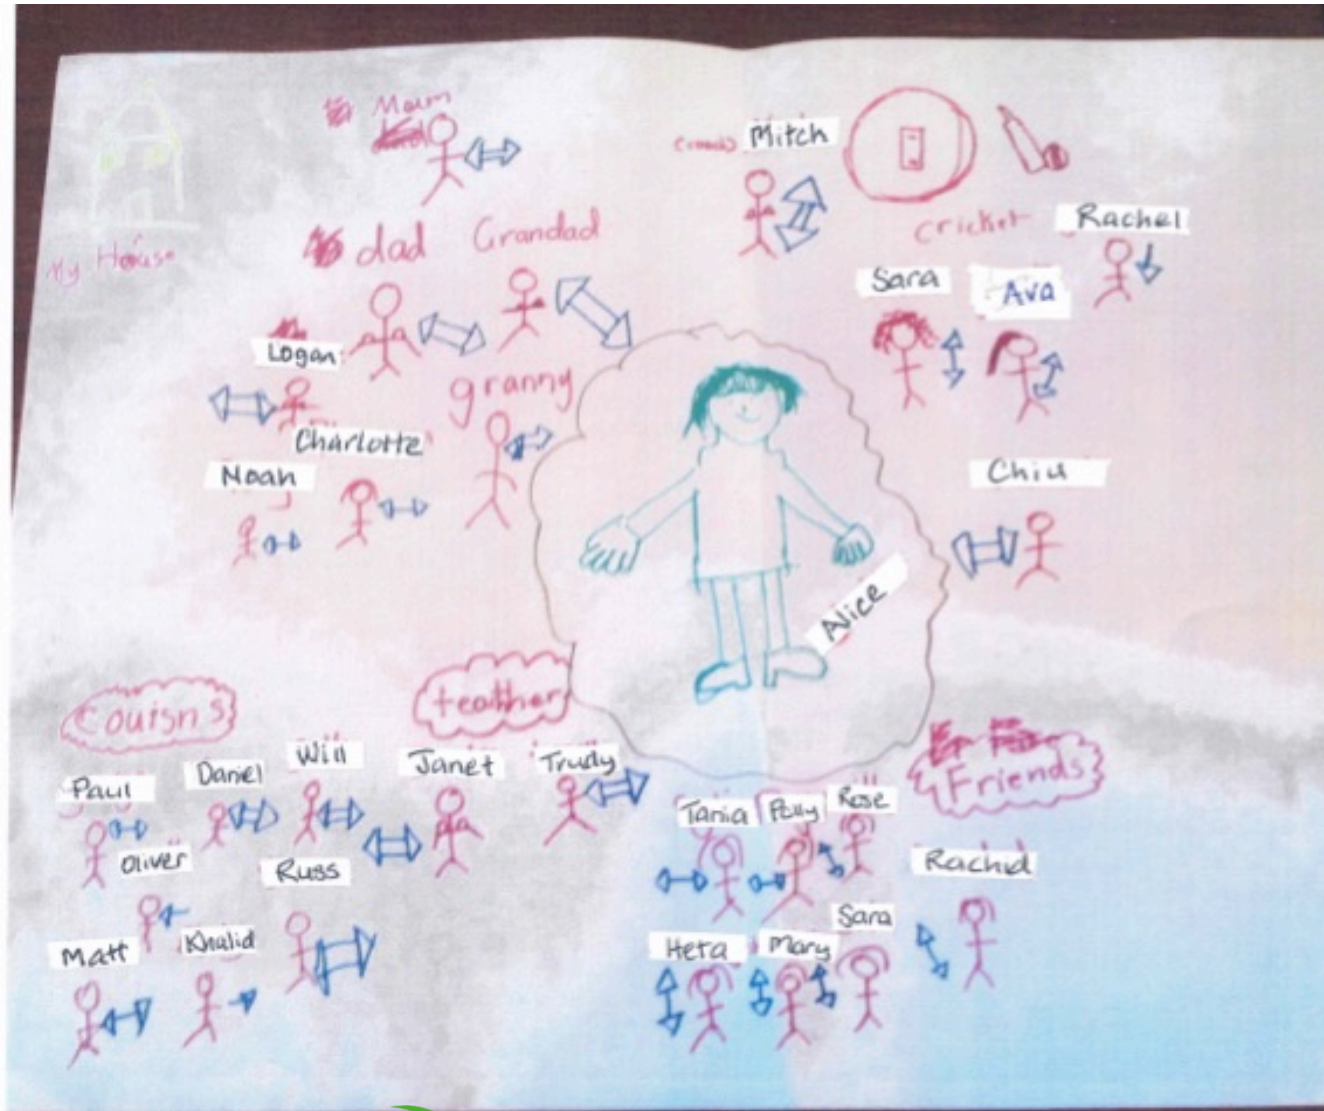 Mam
My House
dad
Grandad
Logan
granny
Charlotte
Noah
Mitch
cricket
Rachel
Sara
Ava
Chiu
Alice
Couisns
teather
Paul
Daniel
Will
Janet
Trudy
Oliver
Russ
Matt
Khalid
Friends
Tania
Polly
Rose
Rachid
Heta
Mary
Sara